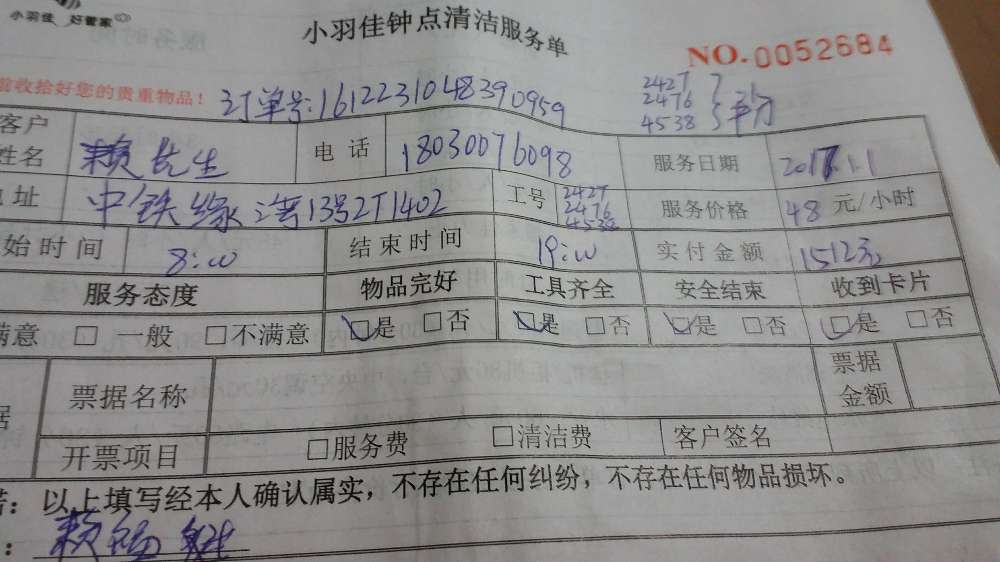 小羽佳 好管家
小羽佳钟点清洁服务单
NO.0052684
前收拾好您的贵重物品！
订单号:1612231048390959
2427
2476
4538
平分
客户
姓名 赖先生 电话 18030076098 服务日期 2017.1.1
地址 中铁缘 湾13号2T1402 工号 2427 2476 4538 服务价格 48 元/小时
始时间 8:00 结束时间 19:00 实付金额 1512元
服务态度 物品完好 工具齐全 安全结束 收到卡片
满意 □ 一般 □不满意 □是 □否 □是 □否 □是 □否 □是 □否
据 票据名称 票据金额
开票项目 □服务费 □清洁费 客户签名
诺：以上填写经本人确认属实，不存在任何纠纷，不存在任何物品损坏。
： 赖